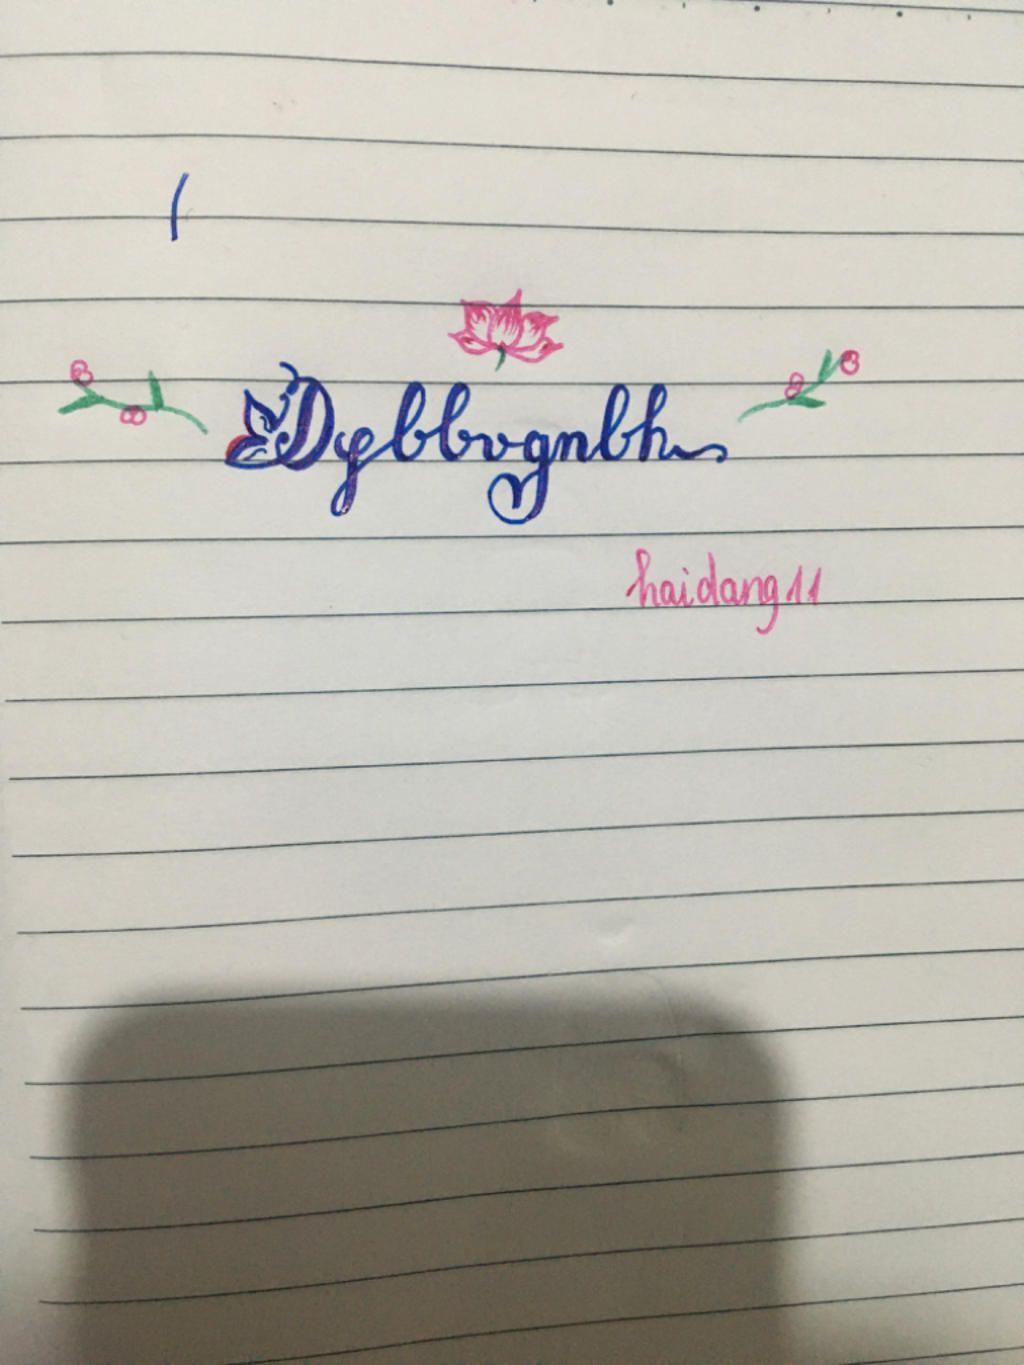 Dybbvgnbh
haidang11